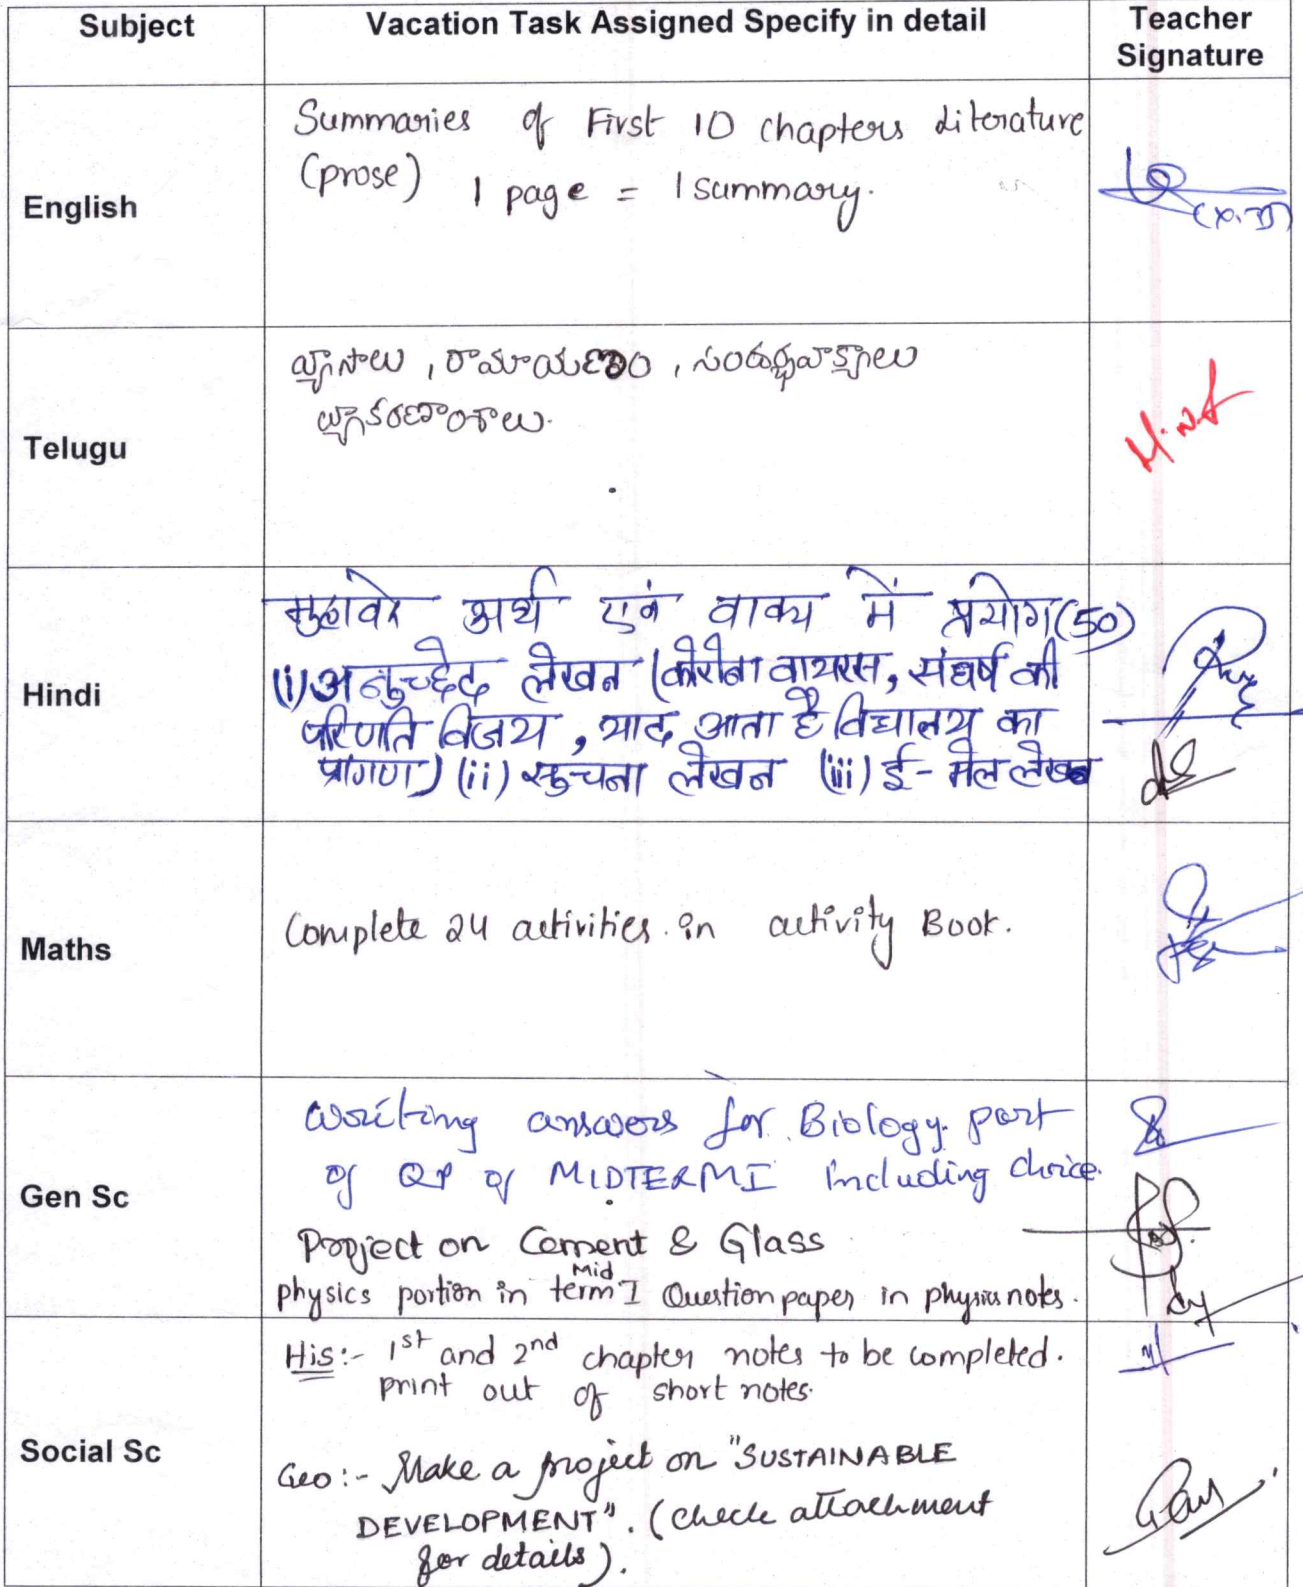 Subject Vacation Task Assigned Specify in detail Teacher Signature
English
Summaries of First 10 chapters Literature
(prose) 1 page = 1 summary.
(X.D)
Telugu
వ్యాసాలు, రామాయణం, సందర్భవాక్యాలు
వ్యాకరణాంశాలు.
Hindi
मुहावरे अर्थ एवं वाक्य में प्रयोग(50)
(i) अनुच्छेद लेखन (कोरोना वायरस, संघर्ष की
परिणति विजय, याद आता है विद्यालय का
प्रांगण) (ii) सूचना लेखन (iii) ई-मेल लेखन
Maths
Complete 24 activities in activity Book.
Gen Sc
Writing answers for Biology part
of QP of MIDTERM I including choice.
Project on Cement & Glass
physics portion in Mid term I Question paper in physics notes.
Social Sc
His:- 1st and 2nd chapter notes to be completed.
print out of short notes.
Geo:- Make a project on "SUSTAINABLE
DEVELOPMENT". (check attachment
for details).